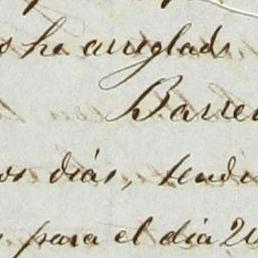 o ha arreglado
Barre
os dias, tendr
para el dia 20